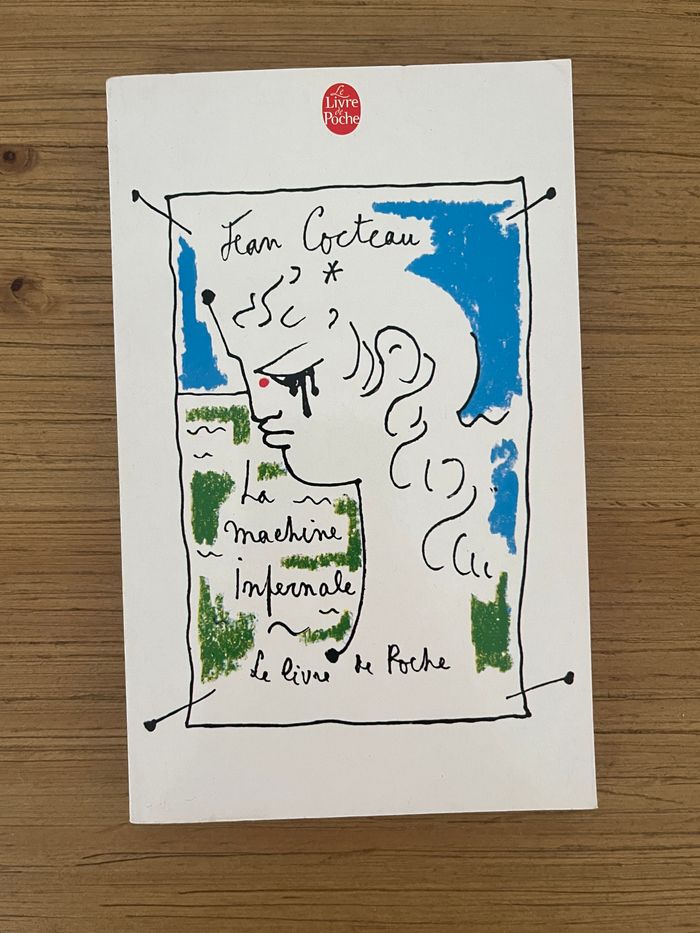 Le
Livre
de
Poche
Jean Cocteau
*
La
machine
infernale
Le livre de Poche